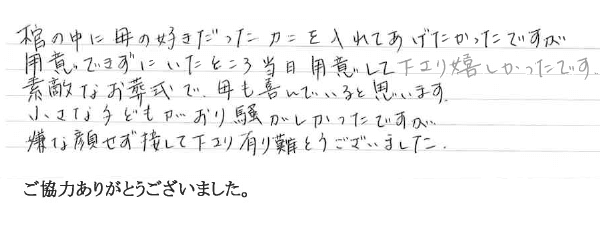 棺の中に母の好きだったカニを入れてあげたかったですが
用意できずにいたところ当日用意して下さり嬉しかったです。
素敵なお葬式で、母も喜んでいると思います。
小さな子どもがおり騒がしかったですが
嫌な顔せず接して下さり有り難とうございました.
ご協力ありがとうございました。